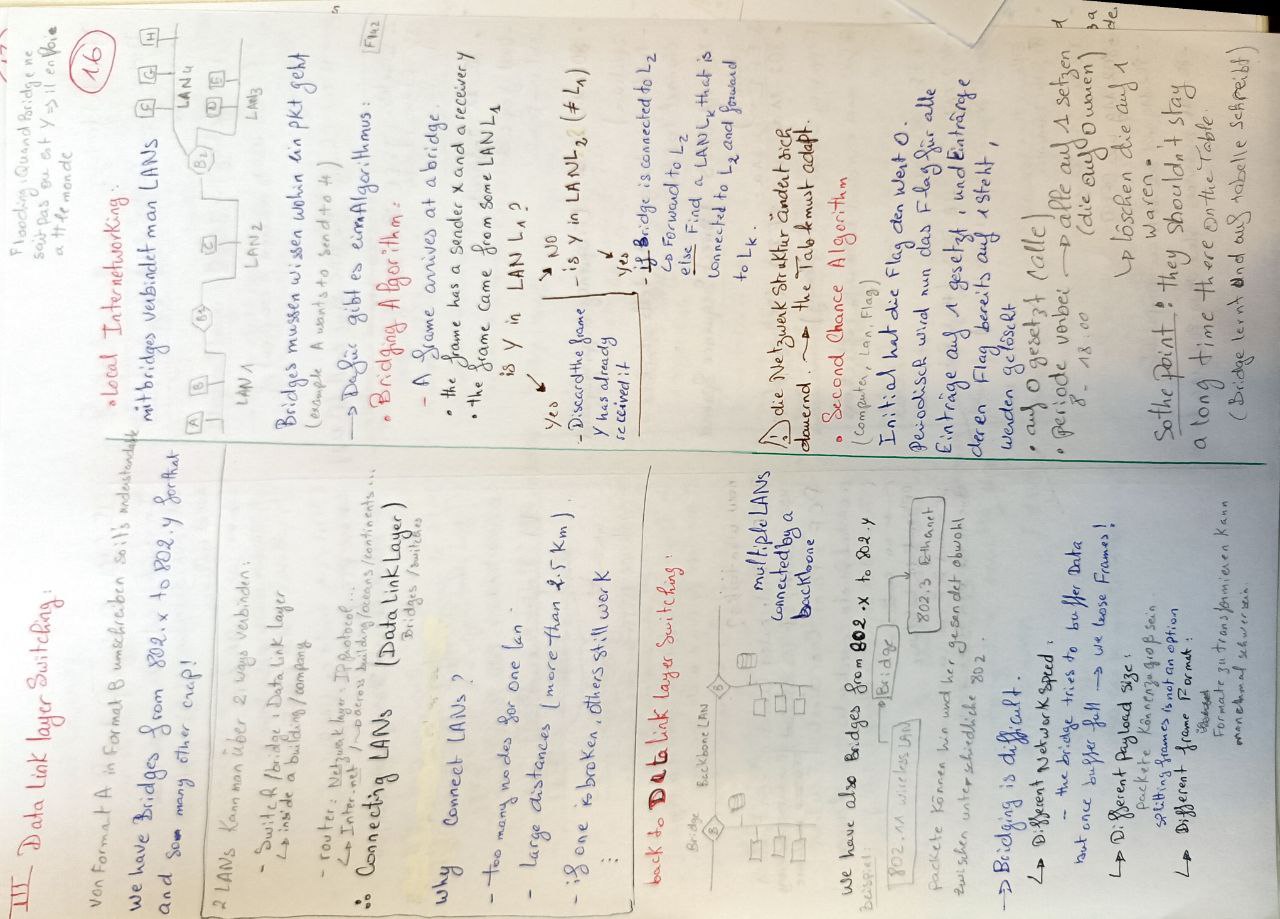 III Data Link layer Switching:
Von Format A in Format B umschreiben so it's understandable
We have Bridges from 802.x to 802.y for that
and so many other crap!
2 LANs kann man über 2 ways verbinden:
- Switch/bridge: Data Link layer
↳ inside a building/company
- router: Netzwerk layer: IP Protocol...
↳ Inter-net / → across building/oceans/continents...
Connecting LANs (Data Link Layer)
Bridges/switches
Why Connect LANs?
- too many nodes for one lan.
- Large distances (more than 2.5 km)
- if one is broken, others still work
⋮
back to Data Link layer Switching:
Bridge
Backbone LAN
B
B
multiple LANs
connected by a
backbone
We have also Bridges from 802.x to 802.y
Beispiel:
802.11 wireless LAN
Bridge
802.3 Ethanet
packete können hin und her gesendet obwohl
zwischen unterschiedliche 802.
→ Bridging is difficult.
↳ Different Network Speed:
- the bridge tries to buffer Data
but once buffer full → we loose Frames!
↳ Different Payload size:
packete können zu groß sein
splitting frames is not an option
↳ Different frame Format:
Formate zu transformieren kann
manchmal schwer sein
Flooding: Quand Bridge ne
sait pas ou est Y => il envoie
a tt le monde
16
• Local Internetworking:
mit bridges verbindet man LANs
A
B
LAN 1
B1
C
LAN 2
B2
F
G
H
LAN 4
D
E
LAN3
Bridges mussen wissen wohin ein pkt geht
(example A wants to send to H)
→ Dafür gibt es ein Algorithmus:
• Bridging Algorithm:
- A frame arrives at a bridge.
• the frame has a sender x and a receiver y
• the frame came from some LAN L1
is Y in LAN L1?
Yes
NO
- Discard the frame
Y has already
received it
- is Y in LAN L2? (≠ L1)
Yes
- if Bridge is connected to L2
↳ Forward to L2
else Find a LAN Lk that is
connected to L2 and forward
to Lk.
⚠ die Netzwerk Struktur ändert sich
dauernd. → the Table must adapt.
• Second Chance Algorithm
(Computer, Lan, Flag)
Initial hat die Flag den Wert 0.
Periodisch wird nun das Flag für alle
Einträge auf 1 gesetzt, und Einträge
deren Flag bereits auf 1 steht,
werden gelöscht
• auf 0 gesetzt (alle)
• periode vorbei → alle auf 1 setzen
8 - 18:00 (die auf 0 waren)
↳ löschen die auf 1
waren.
So the Point: they shouldn't stay
a long time there on the Table.
(Bridge lernt und auf tabelle schreibt)